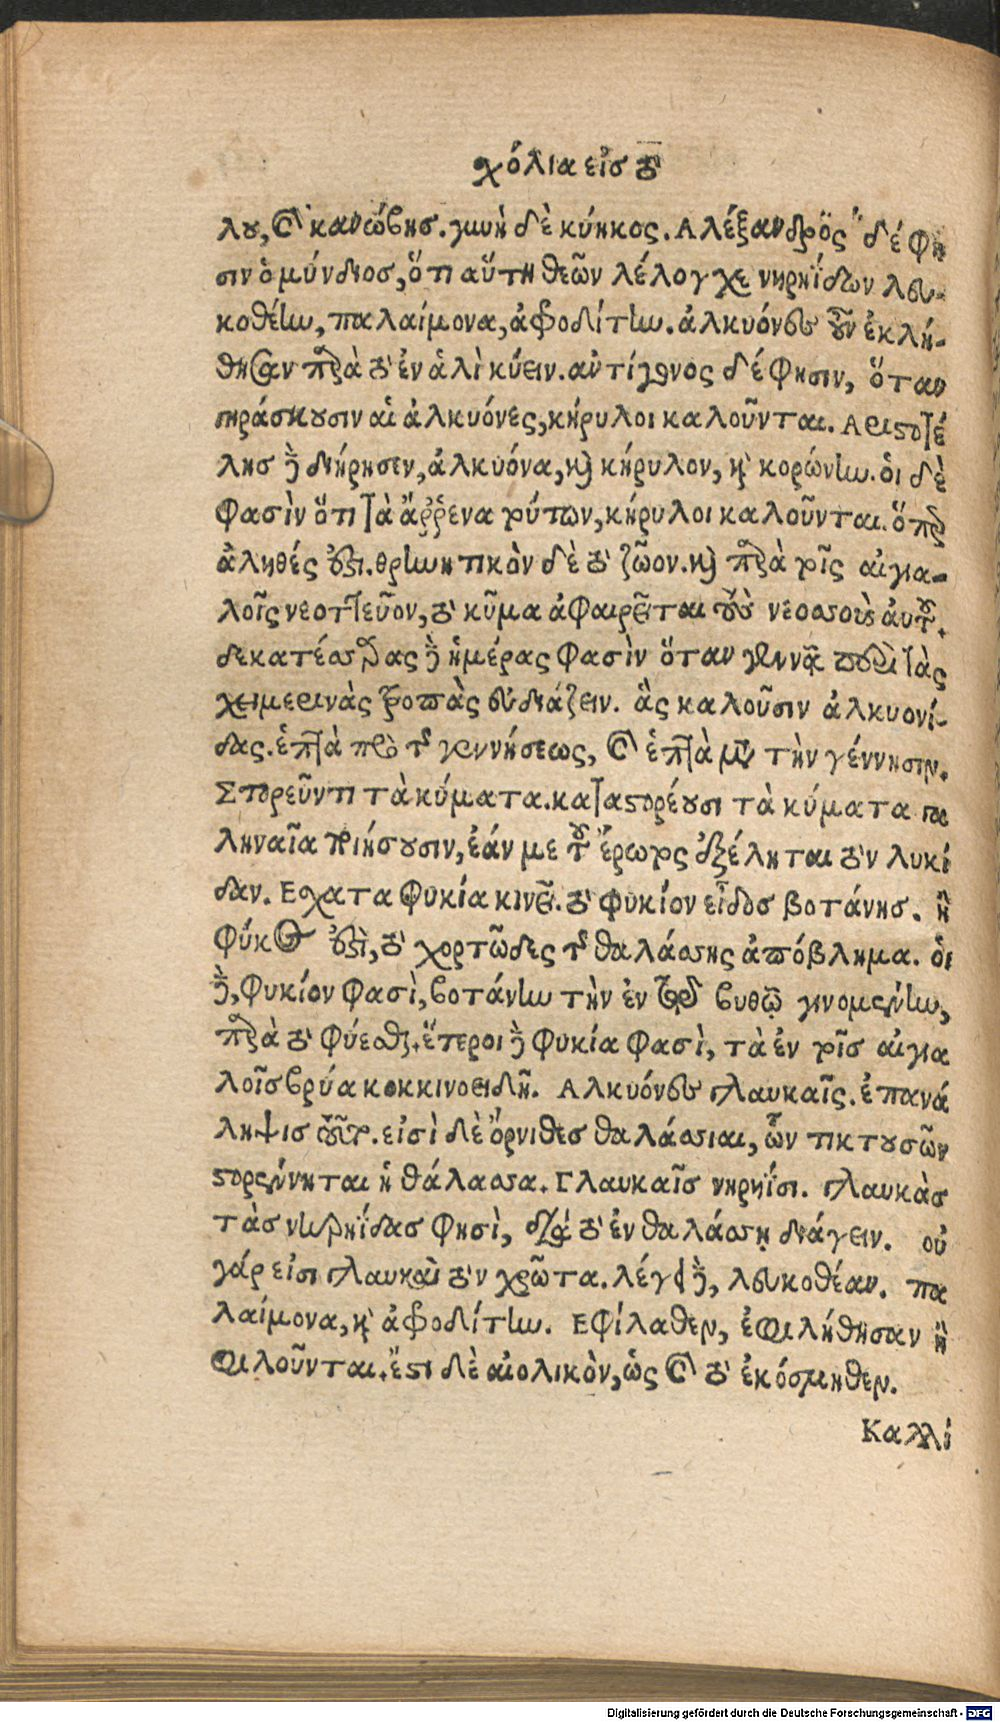 χόλια εἰσ τὸ
λου, καὶ κανώβης. γυνὴ δὲ κύηκος. Αλέξανδρος δέ φη
σιν ὁ μύνδιοσ, ὅτι αὕτη θεῶν λέλογχε νηρηΐδων λευ-
κοθέην, παλαίμονα, ἀφροδίτην. ἀλκυόνες οὖν ἐκλή-
θησαν παρὰ τὸ ἐν ἁλὶ κύειν. ἀντίγονος δέ φησιν, ὅταν
γηράσκουσιν αἱ ἀλκυόνες, κήρυλοι καλοῦνται. Αριστοτέ
λησ δὲ διήρησεν, ἀλκυόνα, καὶ κήρυλον, καὶ κορώνην. οἱ δὲ
φασὶν ὅτι τὰ ἄῤῥενα τούτων, κήρυλοι καλοῦνται. ὅπερ
ἀληθές ἐστι. θρηνητικὸν δὲ τὸ ζῶον. καὶ παρὰ τοῖς αἰγια-
λοῖς νεοττεῦον, τὸ κῦμα ἀφαιρεῖται τοὺς νεοσσοὺς αὐτοῦ.
δεκατέσσαρας δὲ ἡμέρας φασὶν ὅταν γεννᾷ περὶ τὰς
χειμερινὰς τροπὰς εὐδιάζειν. ἃς καλοῦσιν ἀλκυονί-
δας. ἑπτὰ πρὸ τῆς γεννήσεως, καὶ ἑπτὰ μετὰ τὴν γέννησιν.
Στορεῦντι τὰ κύματα. καταστορέσουσι τὰ κύματα γα
ληναῖα ποιήσουσιν, ἐάν με τοῦ ἔρωτος ἐξέληται τὸν λυκί
δαν. Εσχατα φυκία κινεῖ. τὸ φυκίον εἶδοσ βοτάνησ. ἢ
φύκος ἐστὶ, τὸ χορτῶδες τῆς θαλάσσης ἀπόβλημα. οἱ
δὲ, φυκίον φασὶ, βοτάνην τὴν ἐν τῷ βυθῷ γινομένην,
παρὰ τὸ φύεσθαι. ἕτεροι δὲ φυκία φασὶ, τὰ ἐν τοῖσ αἰγια
λοῖσ βρύα κοκκινοειδῆ. Αλκυόνες γλαυκαῖς. ἐπανά
ληψισ τοῦτο. εἰσὶ δὲ ὄρνιθεσ θαλάσσιαι, ὧν τικτουσῶν
στορέννηται ἡ θάλασσα. Γλαυκαῖσ νηρηΐσι. γλαυκὰσ
τὰσ νηρηΐδασ φησὶ, διὰ τὸ ἐν θαλάσσῃ διάγειν. οὐ
γάρ εἰσι γλαυκαὶ τὸν χρῶτα. λέγει δὲ, λευκοθέαν. πα
λαίμονα, καὶ ἀφροδίτην. Εφίλαθεν, ἐφιλήθησαν ἢ
φιλοῦνται. ἔστι δὲ αἰολικὸν, ὡς καὶ τὸ ἐκόσμηθεν.
Καλλί
Digitalisierung gefördert durch die Deutsche Forschungsgemeinschaft - DFG